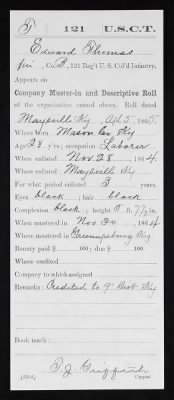 T 121 U.S.C.T.
Edward Thomas
Co. B, 121 Reg't U. S. Col'd Infantry.
Appears on
Company Muster-in and Descriptive Roll
of the organization named above. Roll dated
Maysville Ky, Apl 5, 1865.
Where born Mason Co, Ky
Age 28 y'rs; occupation Laborer
When enlisted Nov 28, 1864.
Where enlisted Maysville Ky
For what period enlisted 3 years.
Eyes black; hair black
Complexion black; height 5 ft. 7½ in.
When mustered in Nov 30, 1864
Where mustered in Greenupsburg Ky
Bounty paid $ 100; due $ 100
Where credited
Company to which assigned
Remarks: Credited to 9" Dist Ky
Book mark:
Griffith
Copyist.